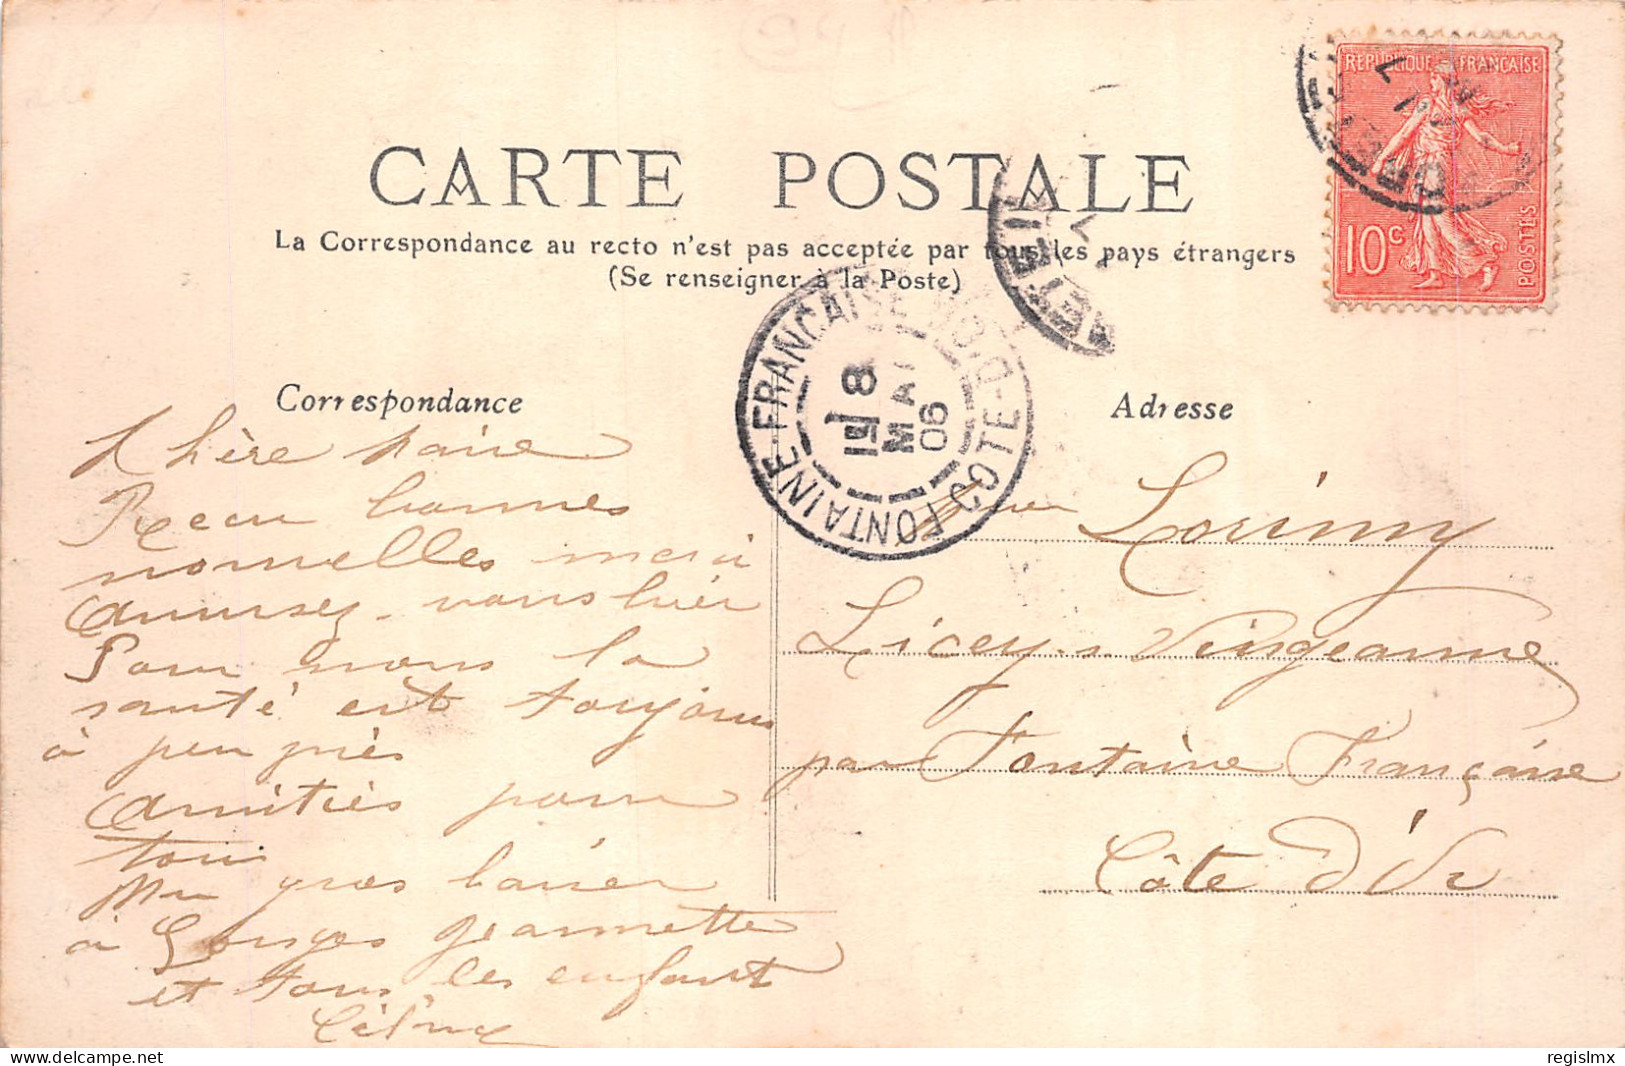 CARTE POSTALE
La Correspondance au recto n'est pas acceptée par tous les pays étrangers
(Se renseigner à la Poste)
REPUBLIQUE FRANCAISE
10c
POSTES
FONTAINE-FRANCAISE
COTE-D'OR
8
MAI
06
Correspondance
Adresse
Chère
Recu bonnes
nouvelles merci
Amusez-vous bien
Pour nous la
santé est toujours
à peu près
Amitiés pour
tous
un gros baiser
à Georges Jeannette
et tous les enfant
Lorimy
Licey s. Vingeanne
par Fontaine Française
Côte d'Or
regislmx